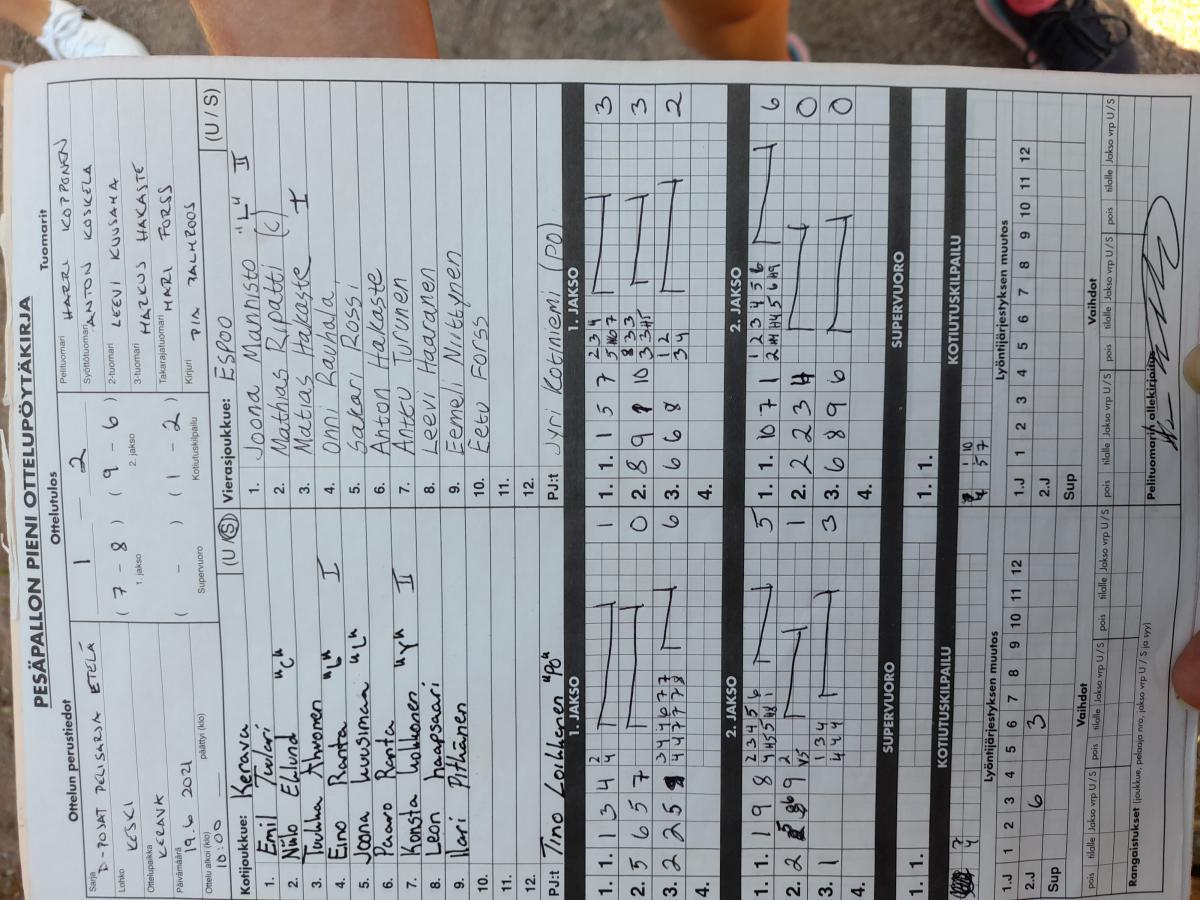 PESÄPALLON PIENI OTTELUPÖYTÄKIRJA
Ottelun perustiedot
Sarja
D-POJAT PELISARJA ETELÄ
Lohko
KESKI
Ottelupaikka
KERAVA
Päivämäärä
19.6 2021
Ottelu alkoi (klo)
päättyi (klo)
10:00
Ottelutulos
1 - 2
( 7 - 8 ) ( 9 - 6 )
1. jakso 2. jakso
( - ) ( 1 - 2 )
Supervuoro Kotiutuskilpailu
Tuomarit
Pelituomari HARRI KOPPONEN
Syöttötuomari ANTON KOSKELA
2-tuomari LEEVI KUUSAMA
3-tuomari MARKUS HAKASTE
Takarajatuomari MARI FORSS
Kirjuri PIA
Kotijoukkue: Kerava (U / S)
1. Emil
2. Niilo Eklund "C"
3. Tuukka Ahvonen
4. Eino Ranta "L" I
5. Joona Kuusimaa "L"
6. Paavo Ranta
7. Konsta Kokkonen "V" II
8. Leon haapsaari
9. Ilari Pitkänen
10.
11.
12.
PJ:t Tino Loikkanen "PO"
Vierasjoukkue: ESPOO (U / S)
1. Joona Mannisto "L" II
2. Mathias Ripatti (C)
3. Matias Hakaste I
4. Onni Rauhala
5. Sakari Rossi
6. Anton Hakaste
7. Anttu Turunen
8. Leevi Haaranen
9. Eemeli Niittynen
10. Eetu Forss
11.
12.
PJ:t Jyri Kotiniemi (PO)
1. JAKSO
1. 1. 1 3 4 1
2. 5 6 5 7 0
3. 2 2 5 6
4.
1. JAKSO
1. 1. 1 5 7 3
2. 8 9 10 3
3. 6 6 8 2
4.
2. JAKSO
1. 1. 1 9 8 5
2. 2 9 1
3. 1 3
4.
2. JAKSO
1. 1. 10 7 1 6
2. 2 2 3 4 0
3. 6 8 9 6 0
4.
SUPERVUORO
1. 1.
SUPERVUORO
1. 1.
KOTIUTUSKILPAILU
KOTIUTUSKILPAILU
Lyöntijärjestyksen muutos
1.J 1 2 3 4 5 6 7 8 9 10 11 12
2.J 6 3
Sup
Lyöntijärjestyksen muutos
1.J 1 2 3 4 5 6 7 8 9 10 11 12
2.J
Sup
Vaihdot
pois tilalle Jakso vrp U / S pois tilalle Jakso vrp U / S
Vaihdot
pois tilalle Jakso vrp U / S pois tilalle Jakso vrp U / S
Rangaistukset (joukkue, pelaaja nro, jakso vrp U / S ja syy)
Pelituomarin allekirjoitus